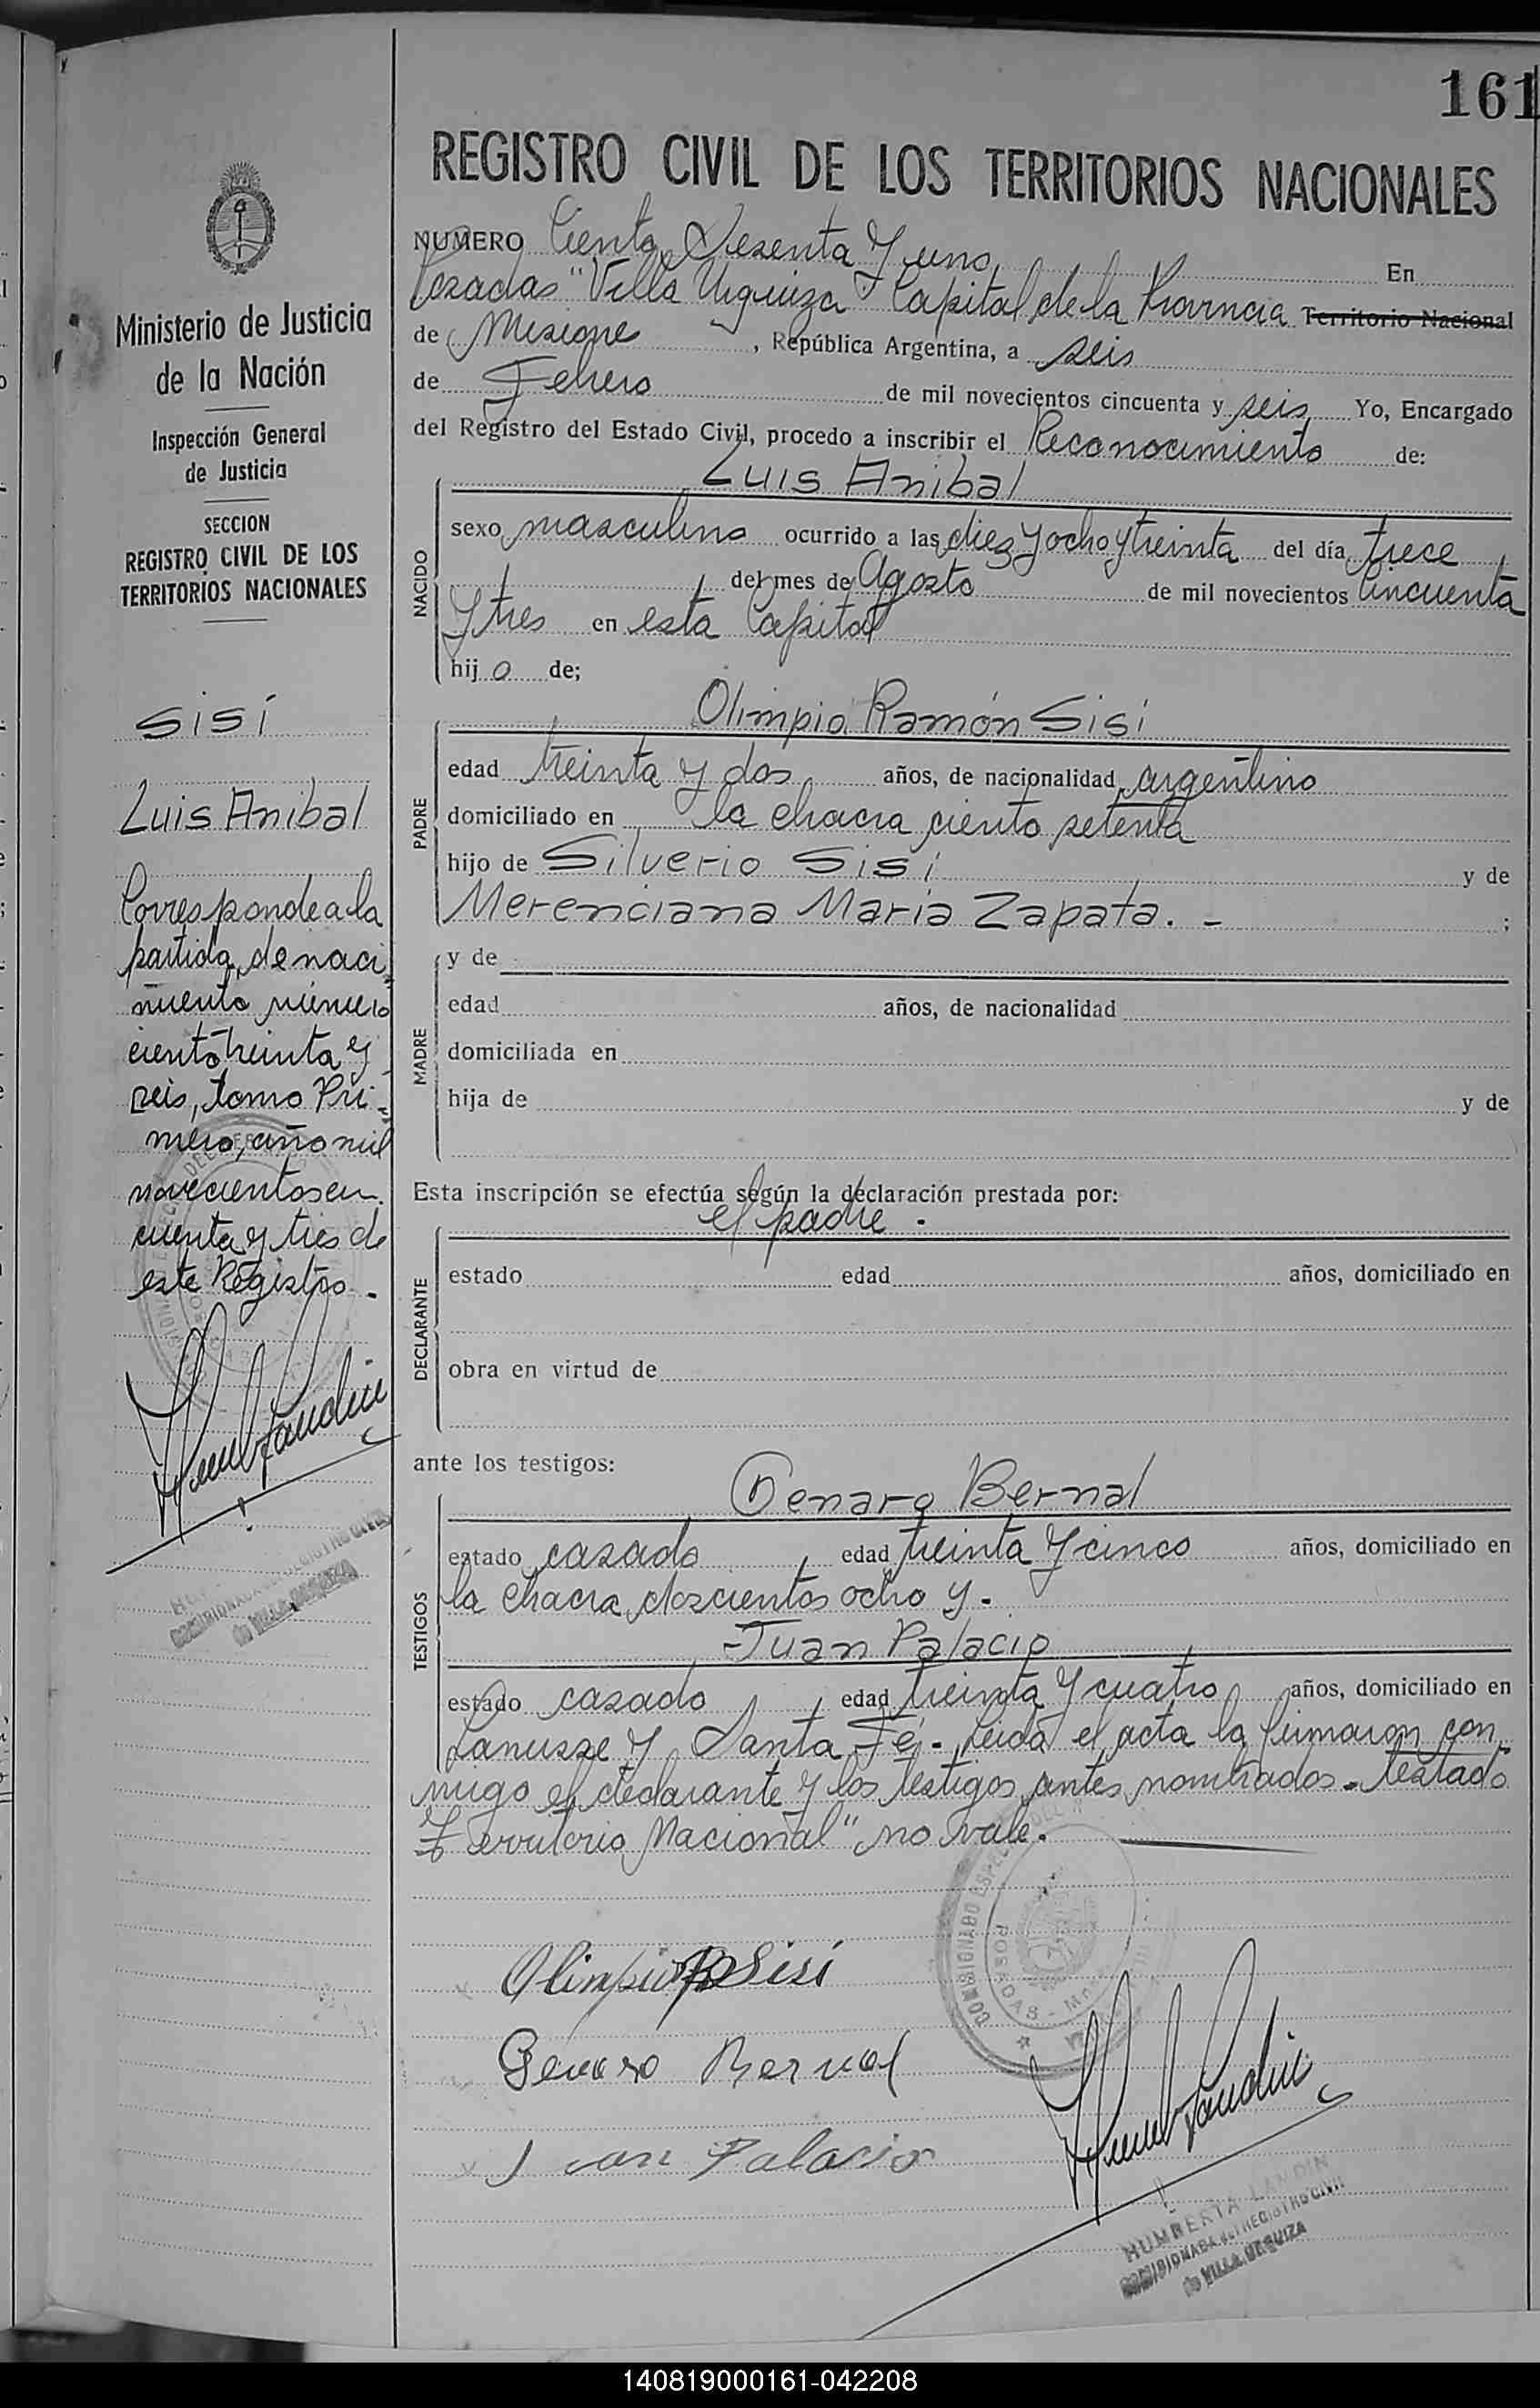 161
REGISTRO CIVIL DE LOS TERRITORIOS NACIONALES
NUMERO Ciento Sesenta Y uno En
Posadas "Villa Urquiza" Capital de la Provincia Territorio Nacional
de Misiones, República Argentina, a seis
de Febrero de mil novecientos cincuenta y seis Yo, Encargado
del Registro del Estado Civil, procedo a inscribir el Reconocimiento de:
NACIDO
Luis Anibal
sexo masculino ocurrido a las diez y ocho y treinta del día trece
del mes de Agosto de mil novecientos Cincuenta
Y tres en esta Capital
hij o de;
PADRE
Olimpio Ramón Sisí
edad treinta y dos años, de nacionalidad argentino
domiciliado en la chacra ciento setenta
hijo de Silverio Sisí y de
Merenciana Maria Zapata. - ;
MADRE
y de
edad años, de nacionalidad
domiciliada en
hija de y de
Esta inscripción se efectúa según la declaración prestada por:
el padre.
DECLARANTE
estado edad años, domiciliado en
obra en virtud de
ante los testigos:
TESTIGOS
Genaro Bernal
estado casado, edad treinta Y cinco años, domiciliado en
la chacra doscientos ocho y.
Juan Palacio
estado casado, edad treinta Y cuatro años, domiciliado en
Lanusse Y Santa Fé.- Leida el acta la firmaron con
migo el declarante y los testigos antes nombrados. testado
"Territorio Nacional" no vale.
Olimpio R Sisí
Genaro Bernal
Juan Palacio
COMISIONADO ESPECIAL DEL
POSADAS - Mnes
HUMBERTA LANDIN
COMISIONADA del REGISTRO CIVIL
de VILLA URQUIZA
Ministerio de Justicia
de la Nación
Inspección General
de Justicia
SECCION
REGISTRO CIVIL DE LOS
TERRITORIOS NACIONALES
Sisí
Luis Anibal
Corresponde a la
partida de naci
miento número
ciento treinta y
seis, tomo Pri-
mero, año mil
novecientos cin
cuenta y tres de
este Registro.
COMISIONADA del REGISTRO CIVIL
de VILLA URQUIZA
140819000161-042208